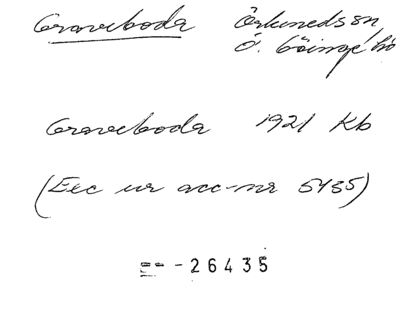 Graveboda Örkeneds sn
Ö. Göinge hd
Graveboda 1921 Kb
(Exc ur acc-nr 5435)
-26435